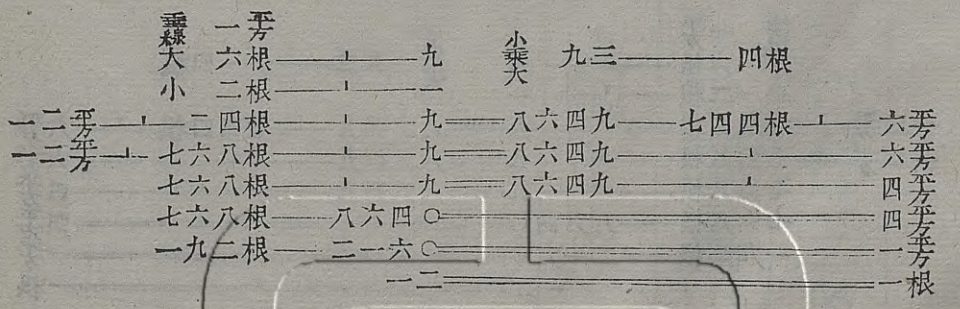 垂線 一平方
大 六根——⊥——九 小乘大 九三———四根
小 二根——⊥——一
一二平方—⊥—二四根———九══八六四九——七四四根—⊥—六平方
一二平方—⊥—七六八根—⊥—九══八六四九——⊥——六平方
七六八根—⊥—九══八六四九——⊥——四平方
七六八根——八六四〇══四平方
一九二根——二一六〇══一平方
一二══一根